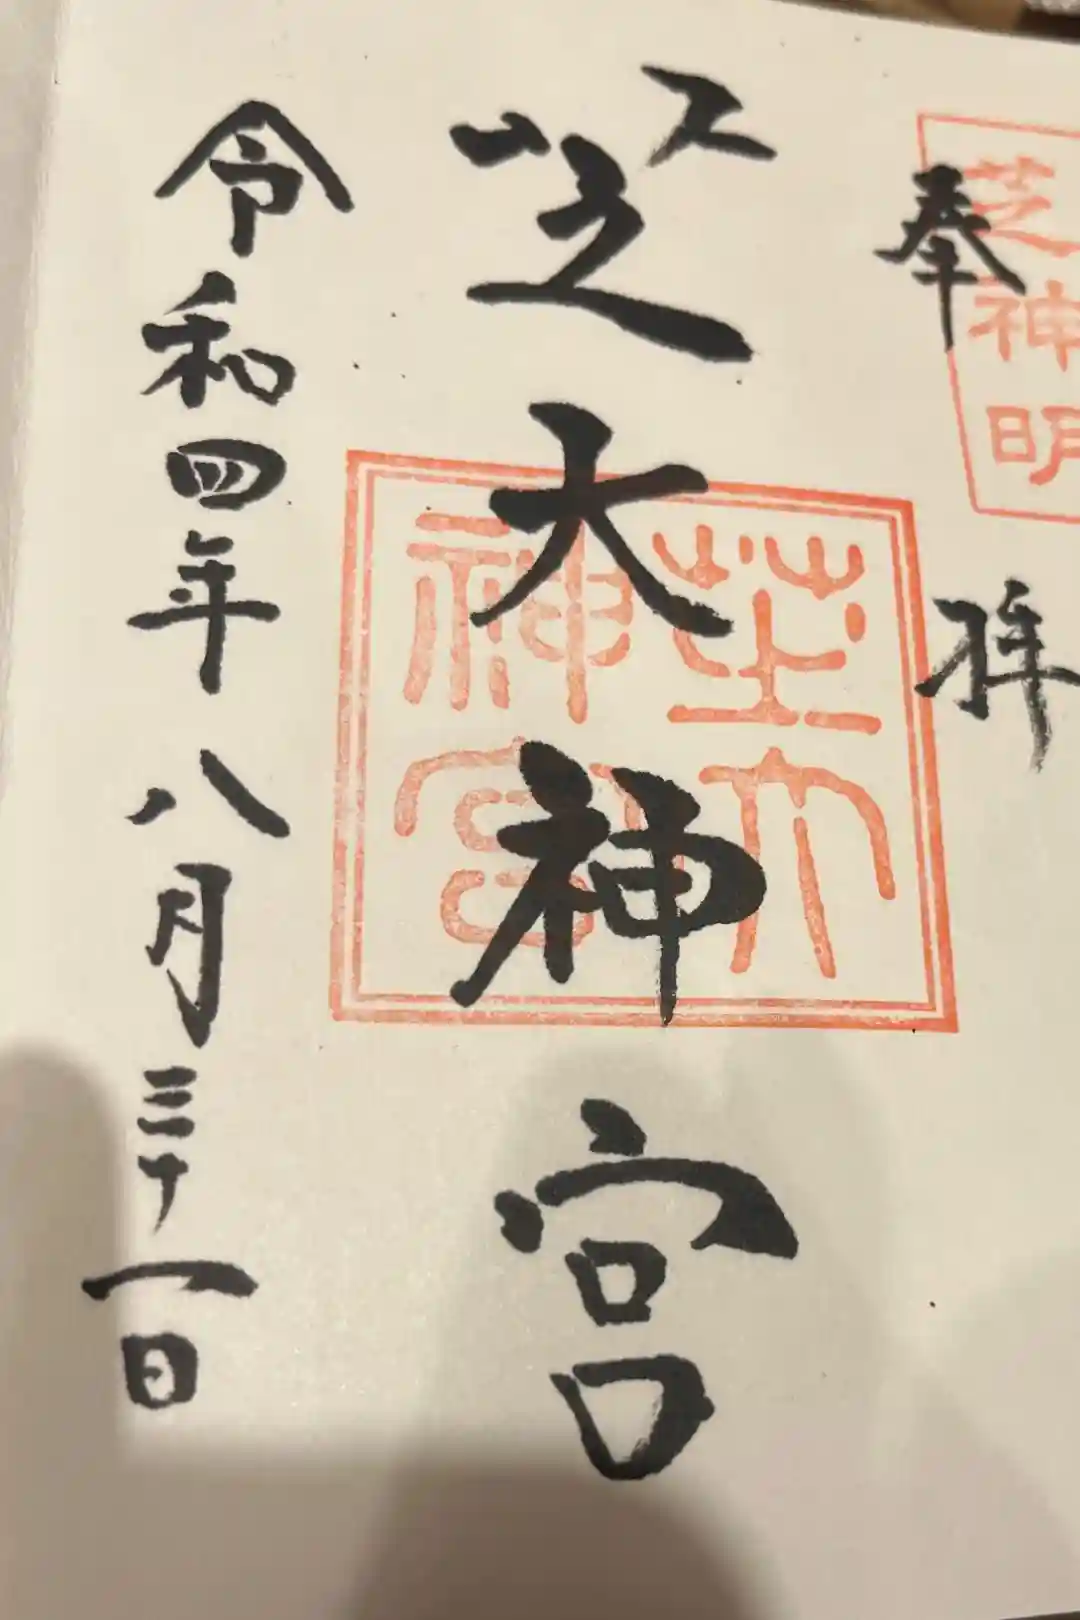 奉拝
芝神明
芝大神宮
芝大神宮
令和四年八月三十一日